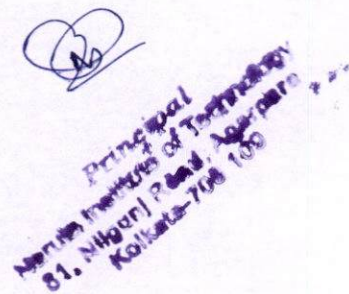 Principal
Narula Institute of Technology
81, Nilganj Road, Agarpara
Kolkata-700 109